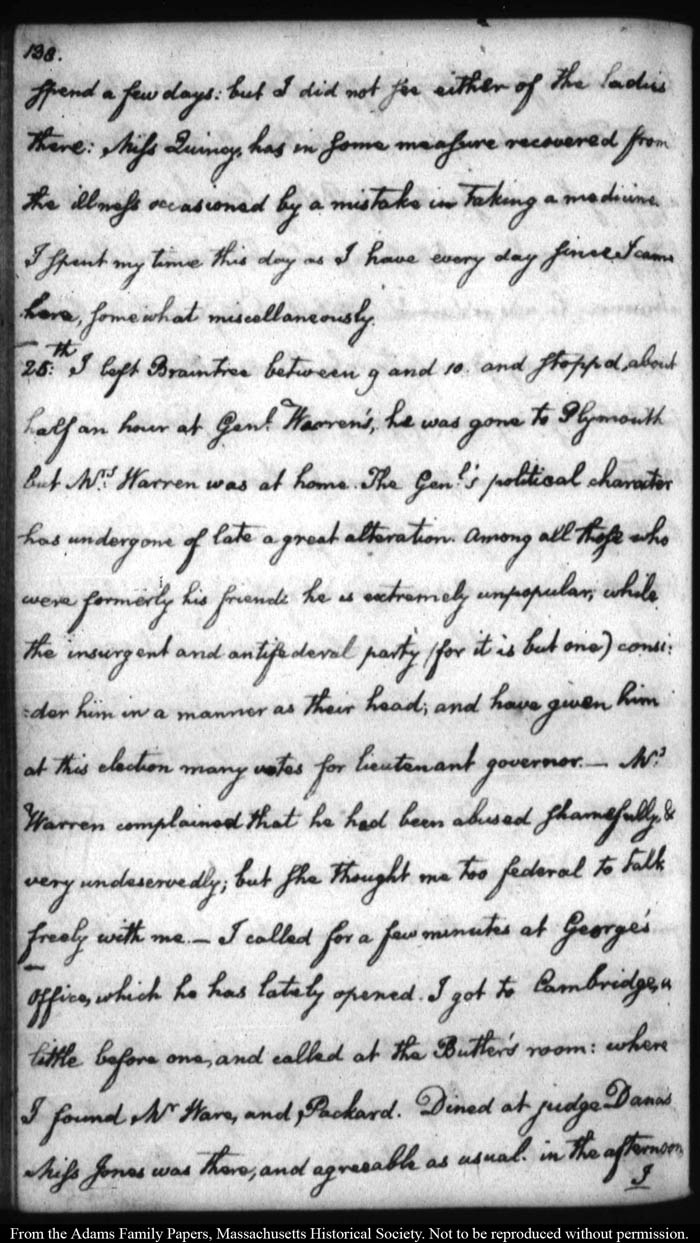 138.
spend a few days: but I did not see either of the ladies
there: Miss Quincy, has in some measure recovered from
the illness occasioned by a mistake in taking a medicine.
I spent my time this day as I have every day since I came
here, somewhat miscellaneously.
25:th I left Braintree between 9 and 10. and stopp'd, about
half an hour at Genl. Warren's, he was gone to Plymouth
but Mrs. Warren was at home. The Genl.'s political character
has undergone of late a great alteration. Among all those who
were formerly his friends he is extremely unpopular; while
the insurgent and antifederal party (for it is but one) consi:
:der him in a manner as their head; and have given him
at this election many votes for lieutenant governor. — Mrs.
Warren complained that he had been abused shamefully, &
very undeservedly; but she thought me too federal to talk
freely with me. — I called for a few minutes at George's
office, which he has lately opened. I got to Cambridge, a
little before one, and called at the Butler's room: where
I found Mr Ware, and, Packard. Dined at judge Dana's
Miss Jones was there, and agreeable as usual. in the afternoon
I
From the Adams Family Papers, Massachusetts Historical Society. Not to be reproduced without permission.